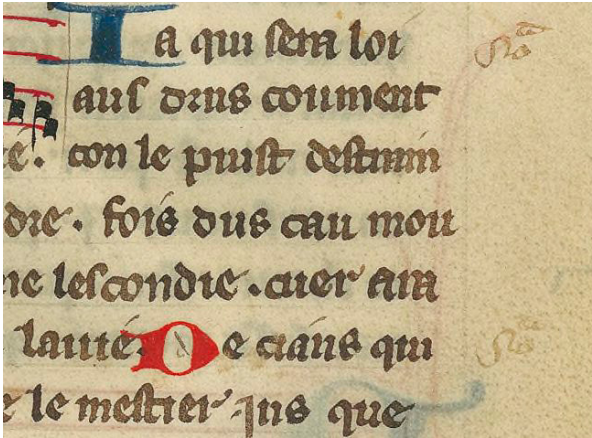 Ia qui sera loi
aus drus coument
te. con le puist destrain
dre. fois dus cau mou
ne lescondie. cuer ara
lauté. De ciaus qui
e le mestier ius que